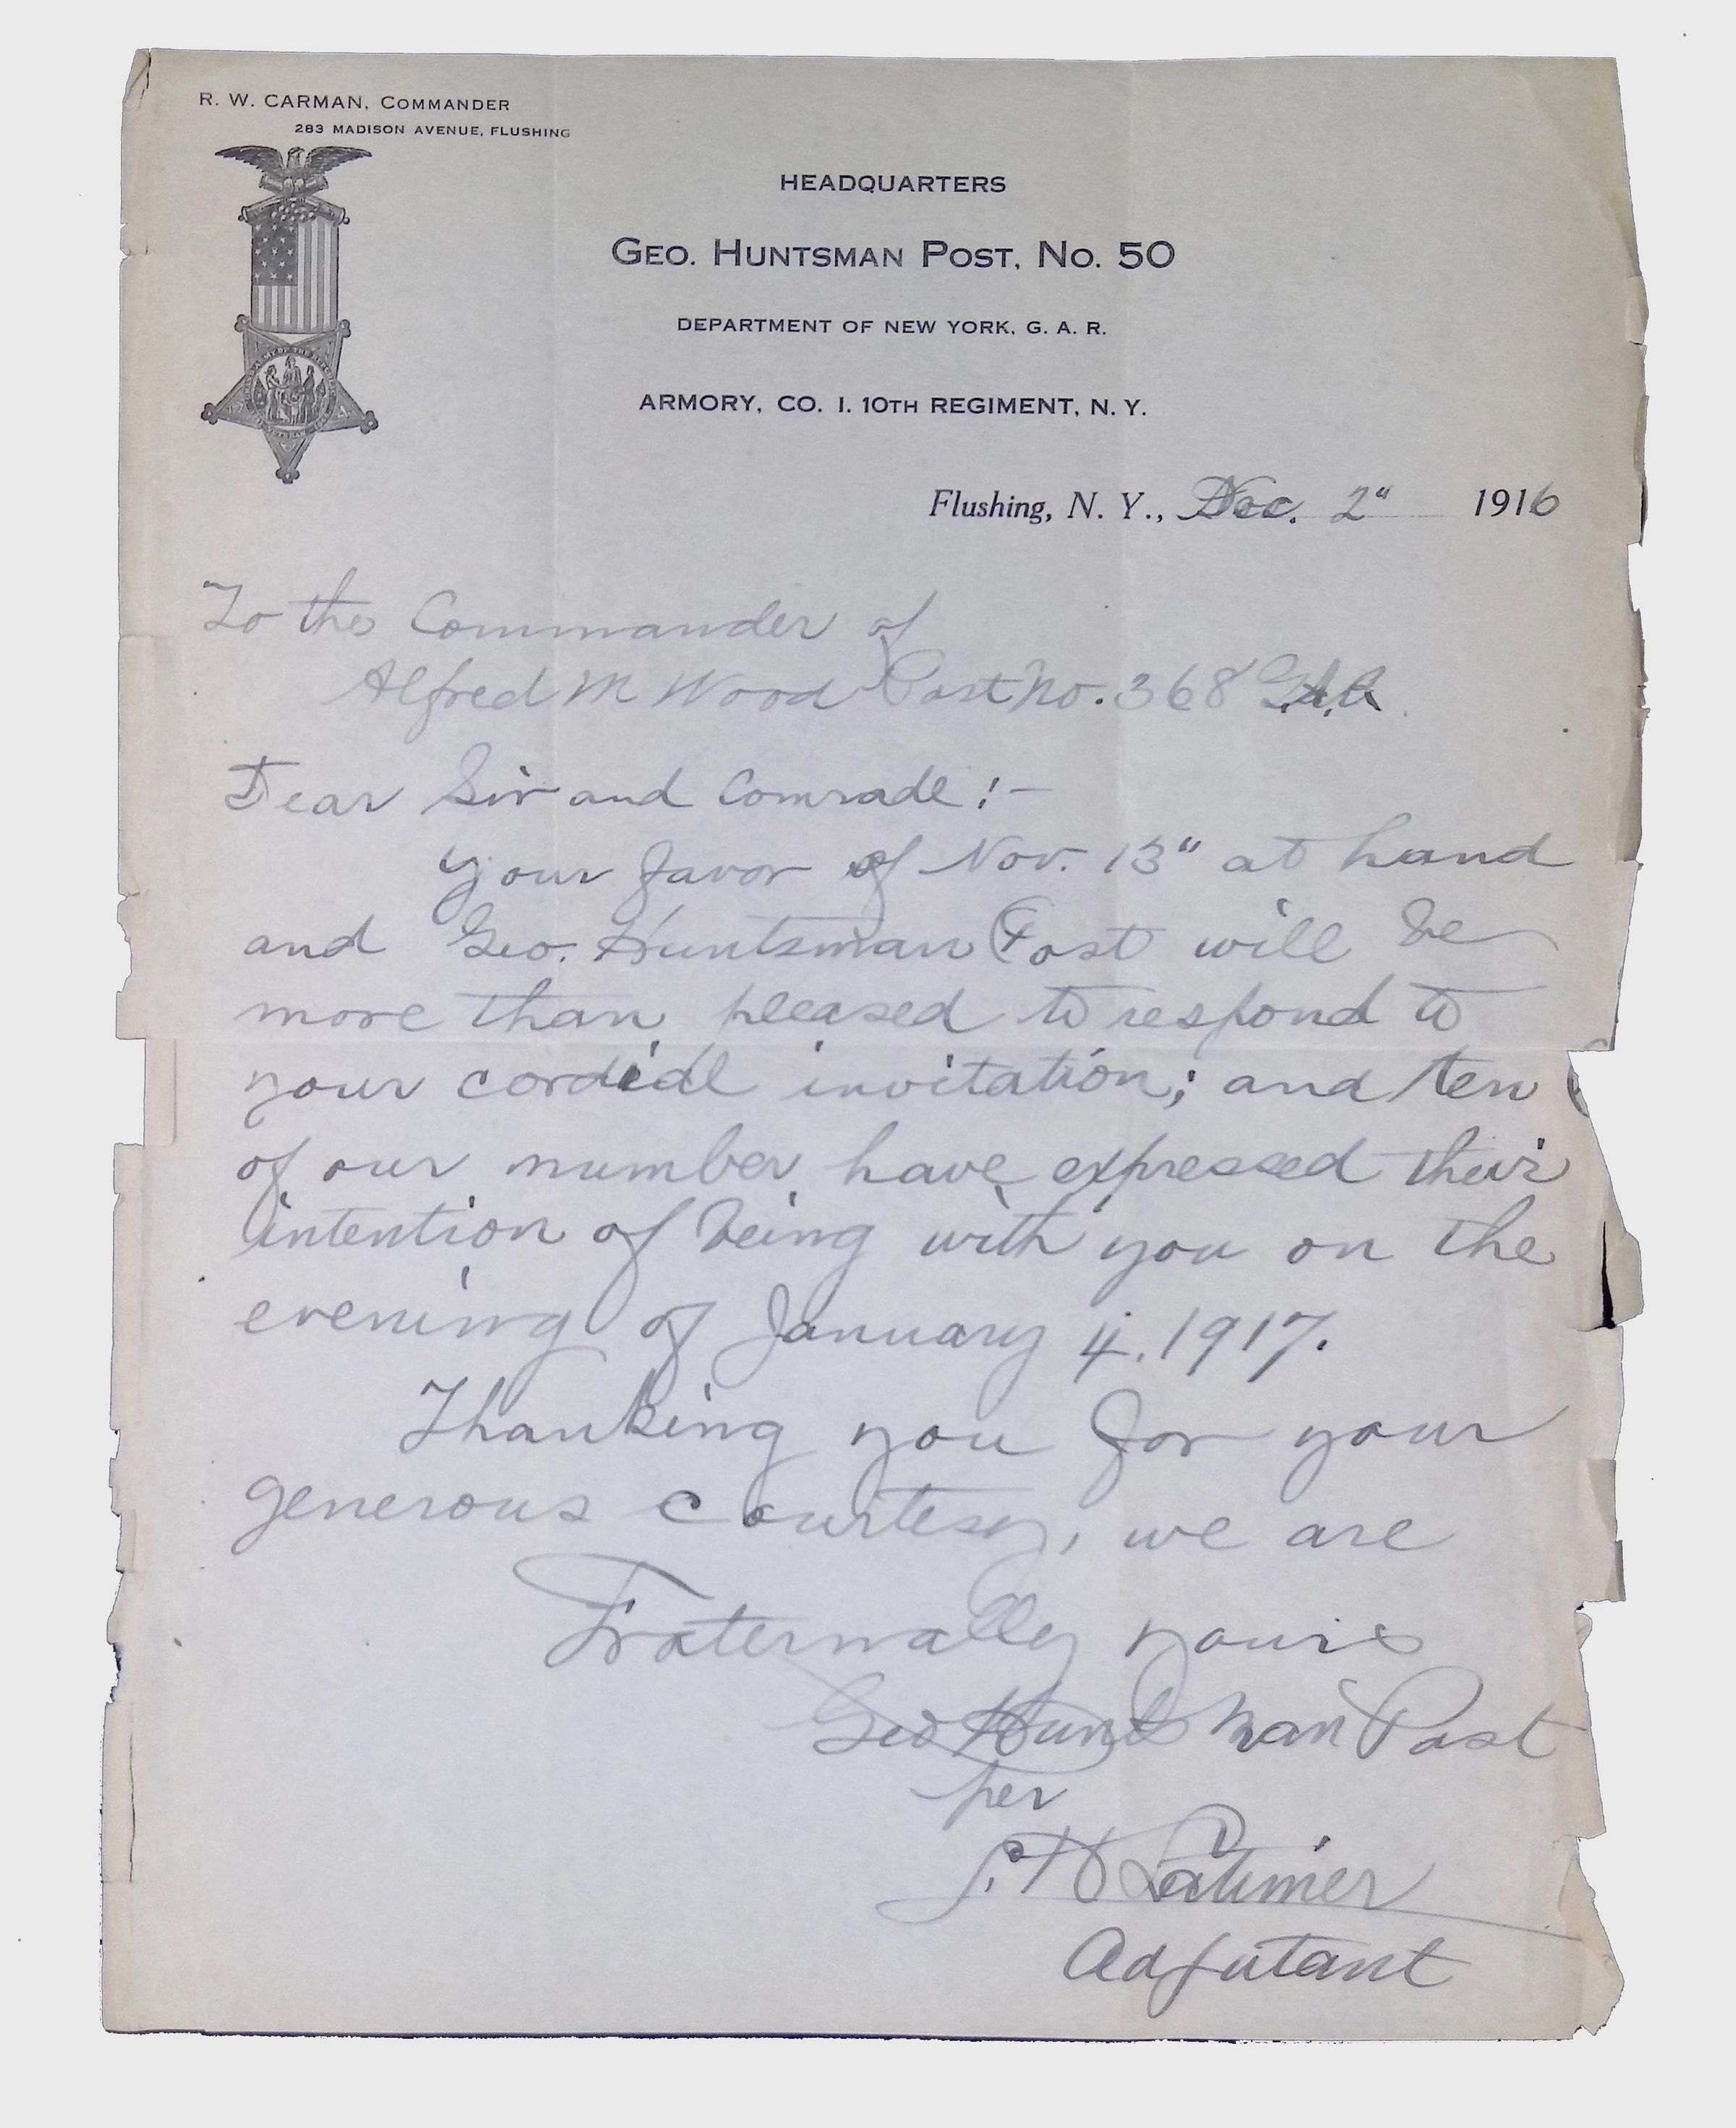 R. W. CARMAN, COMMANDER
283 MADISON AVENUE, FLUSHING
HEADQUARTERS
GEO. HUNTSMAN POST, NO. 50
DEPARTMENT OF NEW YORK, G. A. R.
ARMORY, CO. I. 10TH REGIMENT, N. Y.
Flushing, N. Y., Dec. 2" 1916
To the Commander of
Alfred M Wood Post No. 368 G.A.R.
Dear Sir and Comrade!-
Your favor of Nov. 13" at hand
and Geo. Huntsman Post will be
more than pleased to respond to
your cordial invitation; and ten
of our number have expressed their
intention of being with you on the
evening of January 4. 1917.
Thanking you for your
generous courtesy, we are
Fraternally yours
Geo Huntsman Post
per
L. H Latimer
Adjutant